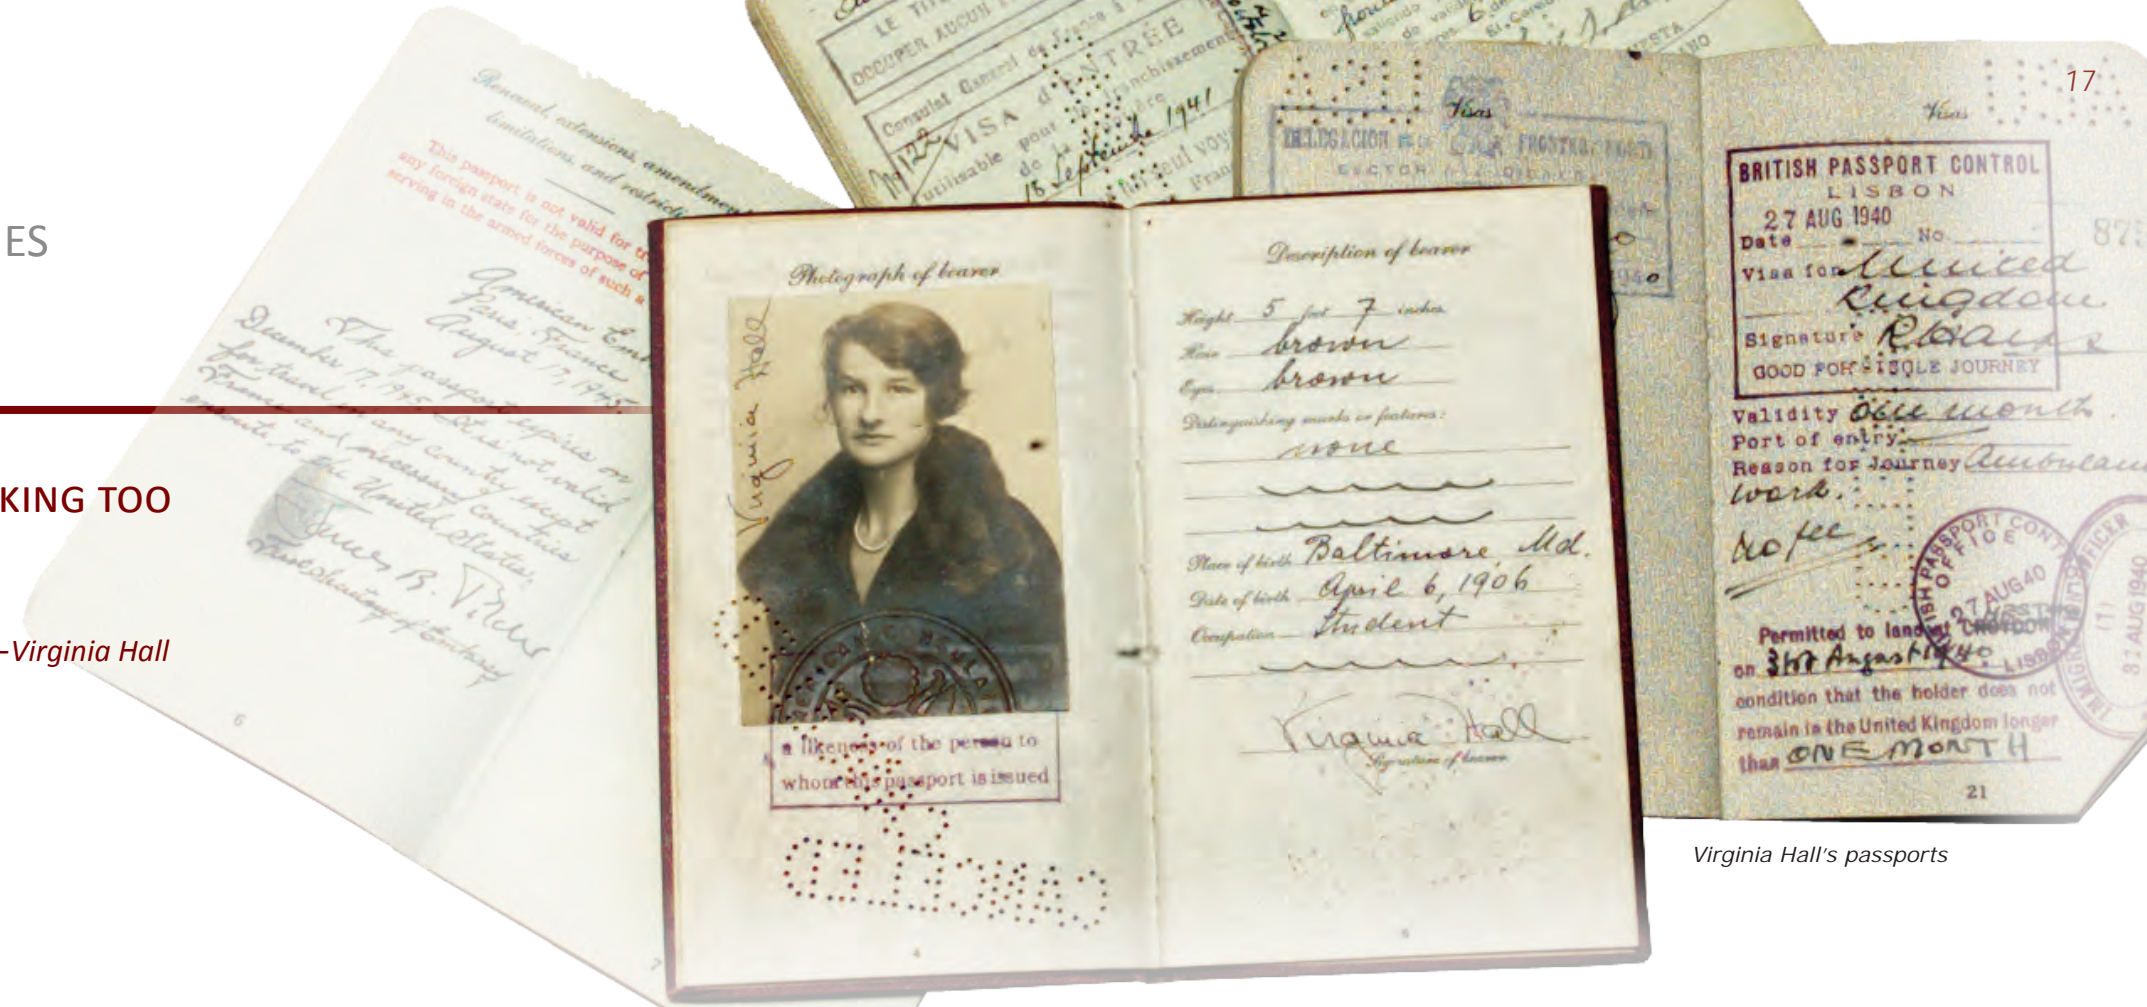 17
ES
KING TOO
–Virginia Hall
Renewal, extensions, amendmen
limitations, and restrictio
This passport is not valid for tr
any foreign state for the purpose of
serving in the armed forces of such a
American Emb
Paris, France
August 17, 1945.
This passport expires on
December 17, 1945. It is not valid
for travel in any country except
France and necessary countries
enroute to the United States.
James B.
6
7
LE TIT
OCCUPER AUCUN
Consulat General de France à
VISA d'ENTRÉE
utilisable pour franchissement
de la
18 Septembre 1941
un seul voy
Fran
Photograph of bearer
Virginia Hall
a likeness of the person to
whom this passport is issued
CANCELLED
4
Description of bearer
Height 5 feet 7 inches
Hair brown
Eyes brown
Distinguishing marks or features:
none
Place of birth Baltimore, Md.
Date of birth April 6, 1906
Occupation Student
Virginia Hall
Signature of bearer
5
Visas
DELEGACION
SECTOR
Visas
BRITISH PASSPORT CONTROL
LISBON
27 AUG 1940
Date No.
Visa for United
Kingdom
Signature
GOOD FOR SINGLE JOURNEY
Validity One month.
Port of entry
Reason for Journey Ambulance
work.
no fee
PASSPORT CONT
OFFICE
27 AUG 40
LISBON
IMMIGRATION OFFICER
(1)
31 AUG 1940
Permitted to land at CROYDON
on 31st August 1940
condition that the holder does not
remain in the United Kingdom longer
than ONE MONTH
21
Virginia Hall's passports